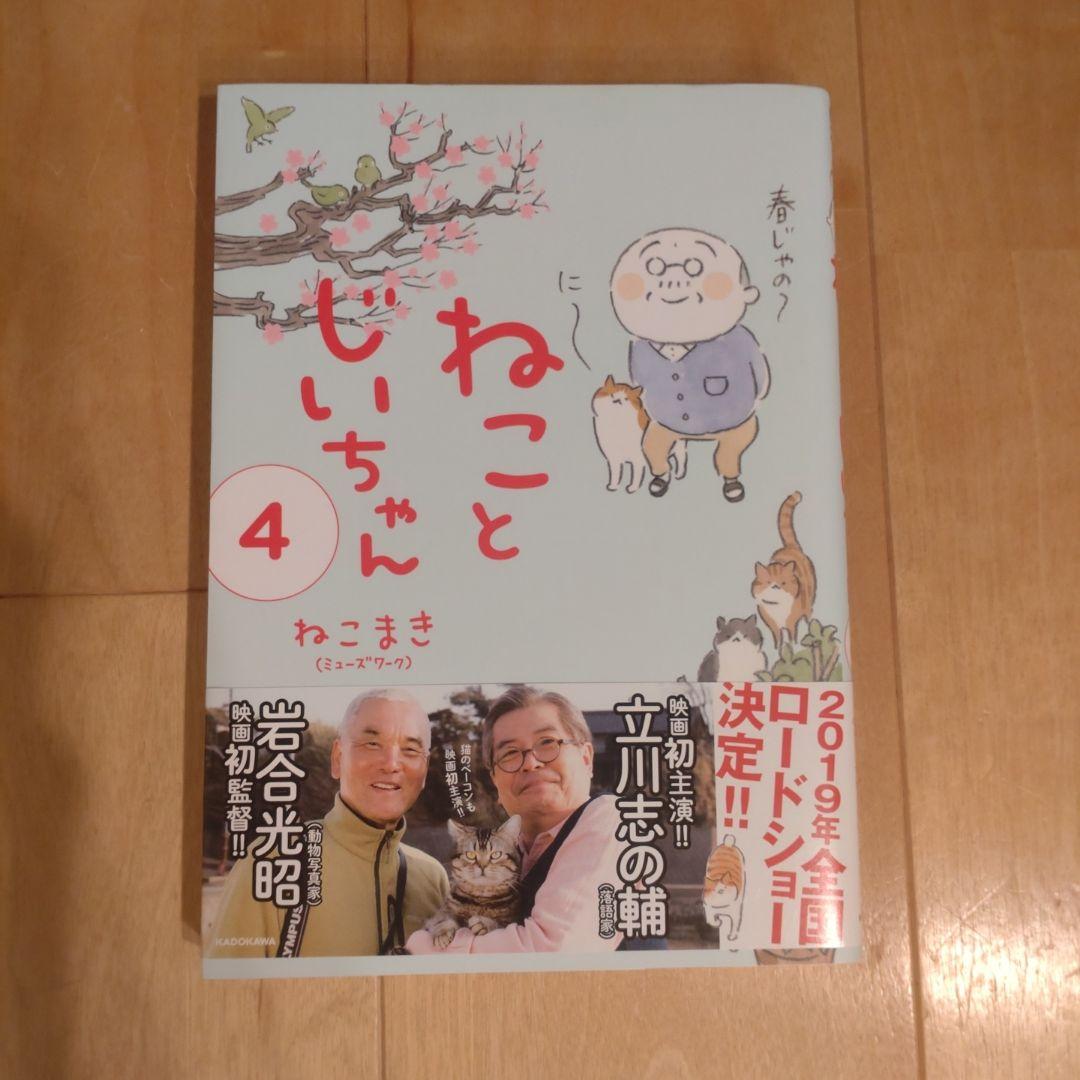 春じゃの〜
に〜
ねこと
じいちゃん
4
ねこまき
(ミューズワーク)
2019年全国
ロードショー
決定!!
映画初主演!!
立川志の輔
(落語家)
猫のベーコンも
映画初主演!!
岩合光昭
(動物写真家)
映画初監督!!
OLYMPUS
KADOKAWA